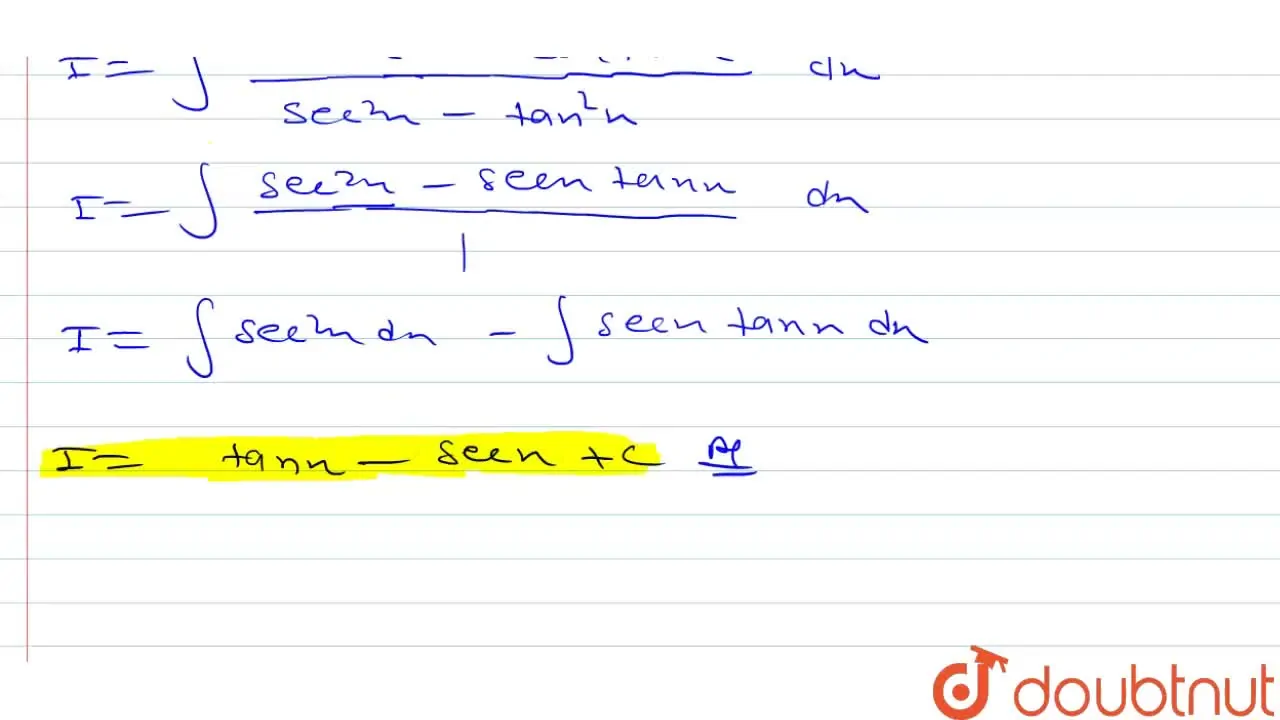 I = ∫ dx
sec²x - tan²x
I = ∫ sec²x - secx tanx dx
1
I = ∫ sec²x dx - ∫ secx tanx dx
I = tanx - secx + c
doubtnut